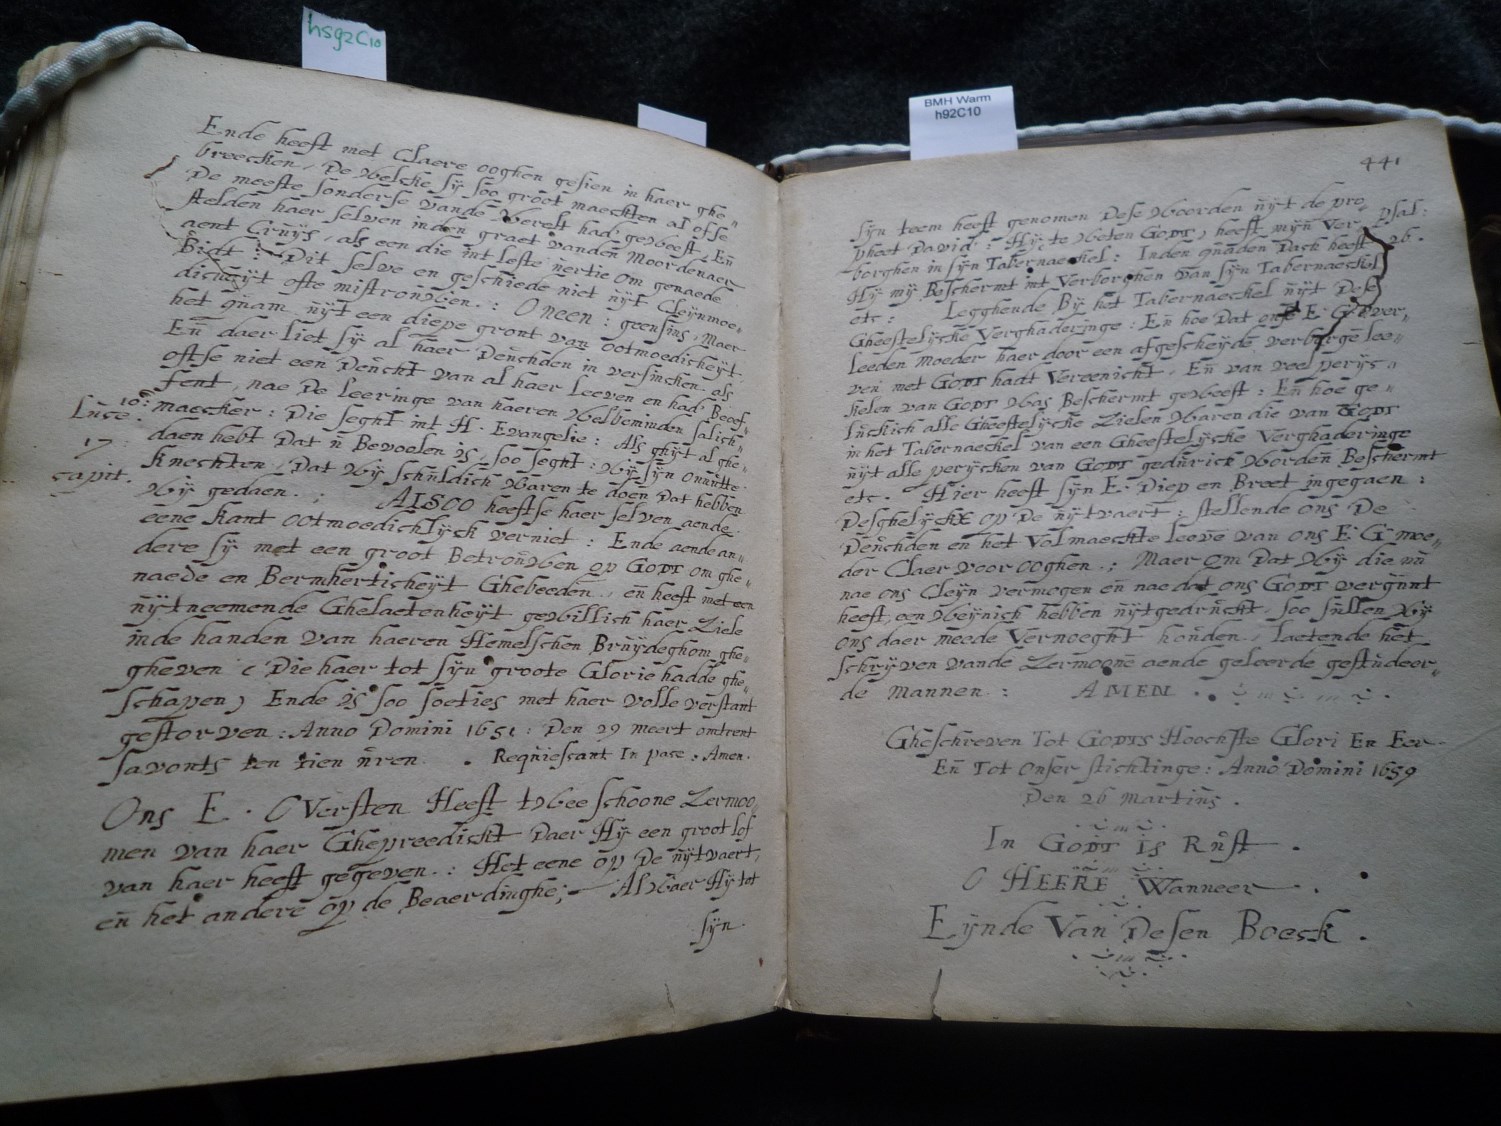 hs92C10
BMH Warm
h92C10
Ende heeft met Claere ooghen gesien in haer ghe„
breecken, De Welcke sÿ soo groot maeckten al ofse
De meeste sonderse vande Werelt had geweest, Eñ
stelden haer selven inden graet vanden Moordenaer
aent Cruÿs, als een die int leste om genaede
Bidt: Dit selve en geschiede niet uÿt Cleÿnmoe„
dicheyt ofte mistrouwen.: O neen: geensins, Maer
het quam uÿt een diepe gront van ootmoedicheyt
Eñ daer liet sÿ al haer Deuchden in versincken als
oftse niet een Deucht van al haer Leeven en had Beoef„
fent, nae De Leeringe van haeren Welbeminden salich„
Luce. 17 capit. 10:
maecker: Die seght int H. Evangelie: Als ghÿt al ghe„
daen hebt Dat u Bevoolen is, soo seght: Wÿ sÿn onnutte
knechten, Dat Wÿ schuldich Waren te doen Dat hebben
Wÿ gedaen.; ALSOO heeftse haer selven aende
eene kant ootmoedichlÿck verniet: Ende aende an„
dere sÿ met een groot Betrouwen op GODT om ghe„
naede en Bermherticheyt Ghebeeden, eñ heeft met een
uÿtneemende Ghelaetenheyt gewillich haer Ziele
inde handen van haeren Hemelschen Bruÿdeghom ghe„
gheven (Die haer tot sÿn groote Glorie hadde ghe„
schapen) Ende is soo soeties met haer volle verstant
gestorven: Anno Domini 1651: Den 29 meert omtrent
savonts ten tien uren. Requiescant In pace. Amen.
Ons E. OVersten Heeft twee schoone Zermoo„
men van haer Ghepreedickt Daer Hÿ een groot lof
van haer heeft gegeven.: Het eene op De uÿtvaert,
eñ het andere op de Beaerdinghe; Al Waer Hÿ tot
sÿn
441
sÿn teem heeft genomen Dese Woorden uÿt de pro„
pheet David: Hÿ, te Weten GODT, heeft mÿn Ver„
psal: 26.
borghen in sÿn Tabernaeckel: Inden quaden Dach heeft
Hÿ mÿ Beschermt int Verborghen van sÿn Tabernaeckel
etc: Legghende Bÿ het Tabernaeckel uÿt Dese
Gheestelÿcke Verghaderinge: Eñ hoe Dat onse E. G over„
leeden Moeder haer door een afgescheyde verborge lee„
ven met GODT hadt Vereenicht, Eñ van veel perÿc„
kelen van GODT Was Beschermt geweest: Eñ hoe ge„
luckich alle Gheestelÿcke Zielen Waren die van GODT
in het Tabernaeckel van een Gheestelÿcke Verghaderinge
uÿt alle perÿcken van GODT gedurich Worden Beschermt
etc. Hier heeft sÿn E. Diep en Breet ingegaen:
Desghelÿckx op De uÿtvaert: stellende ons De
Deuchden en het Volmaeckte leeve van ons E. G. moe„
der Claer voor ooghen.: Maer Om Dat Wÿ die nu
nae ons Cleÿn vermogen eñ nae dat ons GODT vergunt
heeft, een Weÿnich hebben uÿtgedruckt, soo sullen Wÿ
ons daer meede Vernoeght houden, laetende het
schrÿven vande Zermoone aende geleerde gestudeer„
de mannen: AMEN.
Gheschreven Tot GODTS Hoochste Glori En Eer
Eñ Tot Onser stichtinge: Anno Domini 1659
Den 26 Martius.
In GODT is Rust.
O HEERE Wanneer.
Eÿnde Van Desen Boeck.